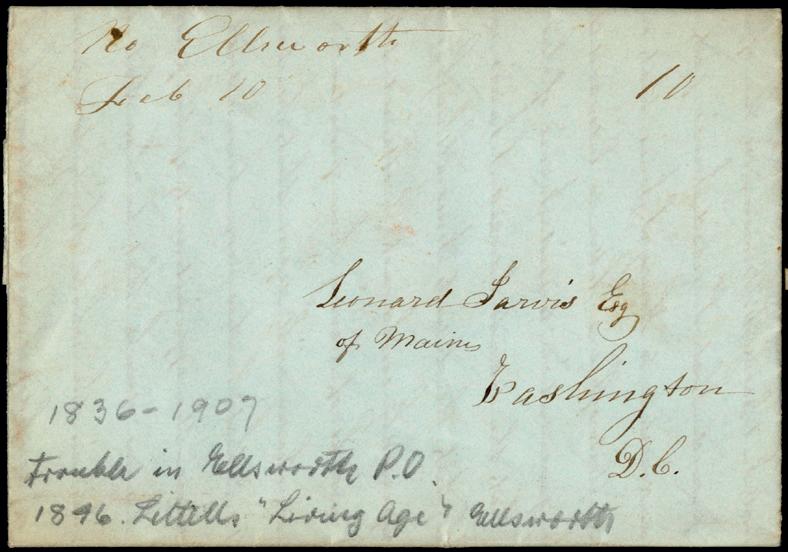 No Ellsworth
Feb 10
10
Leonard Jarvis Esq
of Maine
Washington
D.C.
1836-1907
Trouble in Ellsworth P.O.
1846. Littells "Living Age" Ellsworth